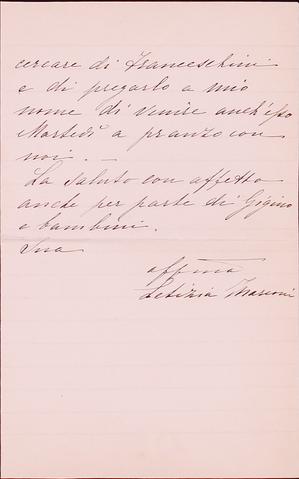 cercare di Franceschini
e di pregarlo a mio
nome di venire anch'esso
Martedì a pranzo con
noi. —
La saluto con affetto
anche per parte di Gigino
e bambini.
Sua
affma
Letizia Marconi